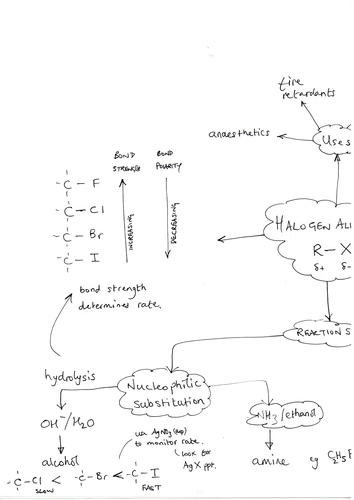 fire
retardants
anaesthetics
Uses
BOND
STRENGTH
BOND
POLARITY
INCREASING
DECREASING
-C-F
-C-Cl
-C-Br
-C-I
HALOGEN AL
R-X
δ+ δ-
bond strength
determines rate.
REACTIONS
hydrolysis
Nucleophilic
Substitution
NH3/ethanol
OH-/H2O
use AgNO3(aq)
to monitor rate.
look for
AgX ppt.
alcohol
amine eg C2H5
-C-Cl < -C-Br < -C-I
SLOW
FAST